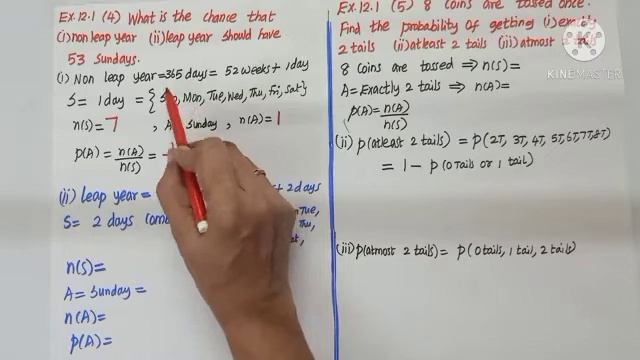 Ex.12.1 (4) What is the chance that
(i) non leap year (ii) leap year should have
53 sundays.
(i) Non leap year = 365 days = 52 weeks + 1 day
S = 1 day = { Mon, Tue, Wed, Thu, Fri, Sat}
n(S) = 7 , A = Sunday , n(A) = 1
P(A) = n(A)/n(S) =
(ii) leap year = + 2 days
S = 2 days Tue,
Thu,
n(S) =
A = Sunday =
n(A) =
P(A) =
Ex.12.1 (5) 8 coins are tossed
Find the probability of getting (i) exactly
2 tails (ii) atleast 2 tails (iii) atmost
8 coins are tossed ⇒ n(S) =
A = Exactly 2 tails ⇒ n(A) =
P(A) = n(A)/n(S)
(ii) P(atleast 2 tails) = P(2T, 3T, 4T, 5T, 6T, 7T, 8T)
= 1 - P(0 Tails or 1 tail)
(iii) P(atmost 2 tails) = P(0 tails, 1 tail, 2 tails)